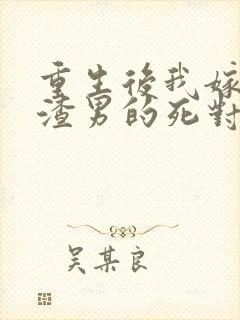 重生後我嫁
渣男的死對
吴某良